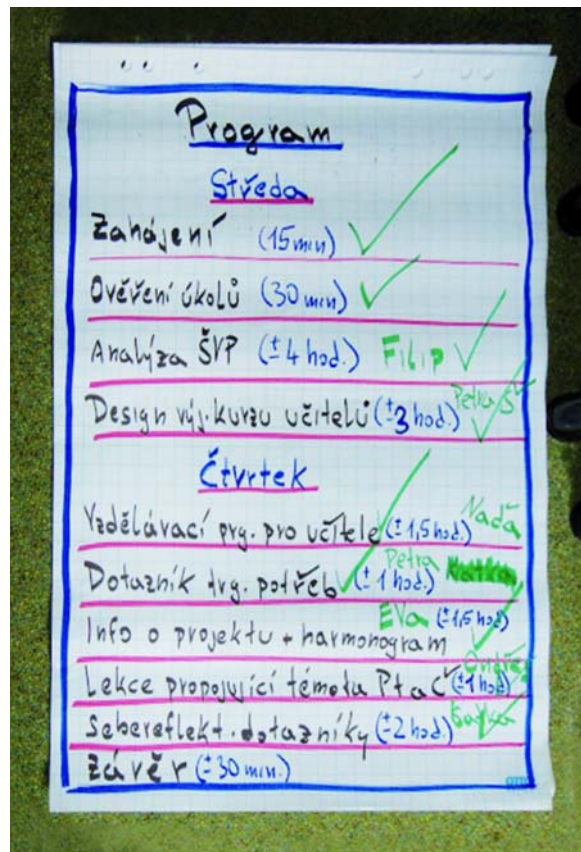 Program
Středa
Zahájení (15 min)
Ověření úkolů (30 min)
Analýza ŠVP (± 4 hod.) FiLiP
Petra Š
Design výj. kurzu učitelů (±3 hod.)
Čtvrtek
Naďa
Vzdělávací prg. pro učitele (± 1,5 hod.)
Petra Katka
Dotazník trg. potřeb (± 1 hod.)
EVa (±1,5 hod.)
Info o projektu + harmonogram
Ondřej
Lekce propojující témata PtaČ (±1 hod.)
Šárka
Sebereflekt. dotazníky (±2 hod.)
Závěr (± 30 min.)